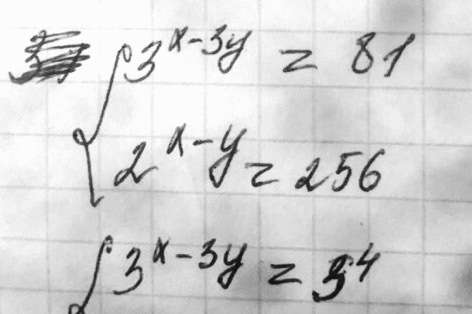 3^{x-3y} = 81
2^{x-y} = 256
3^{x-3y} = 3^4